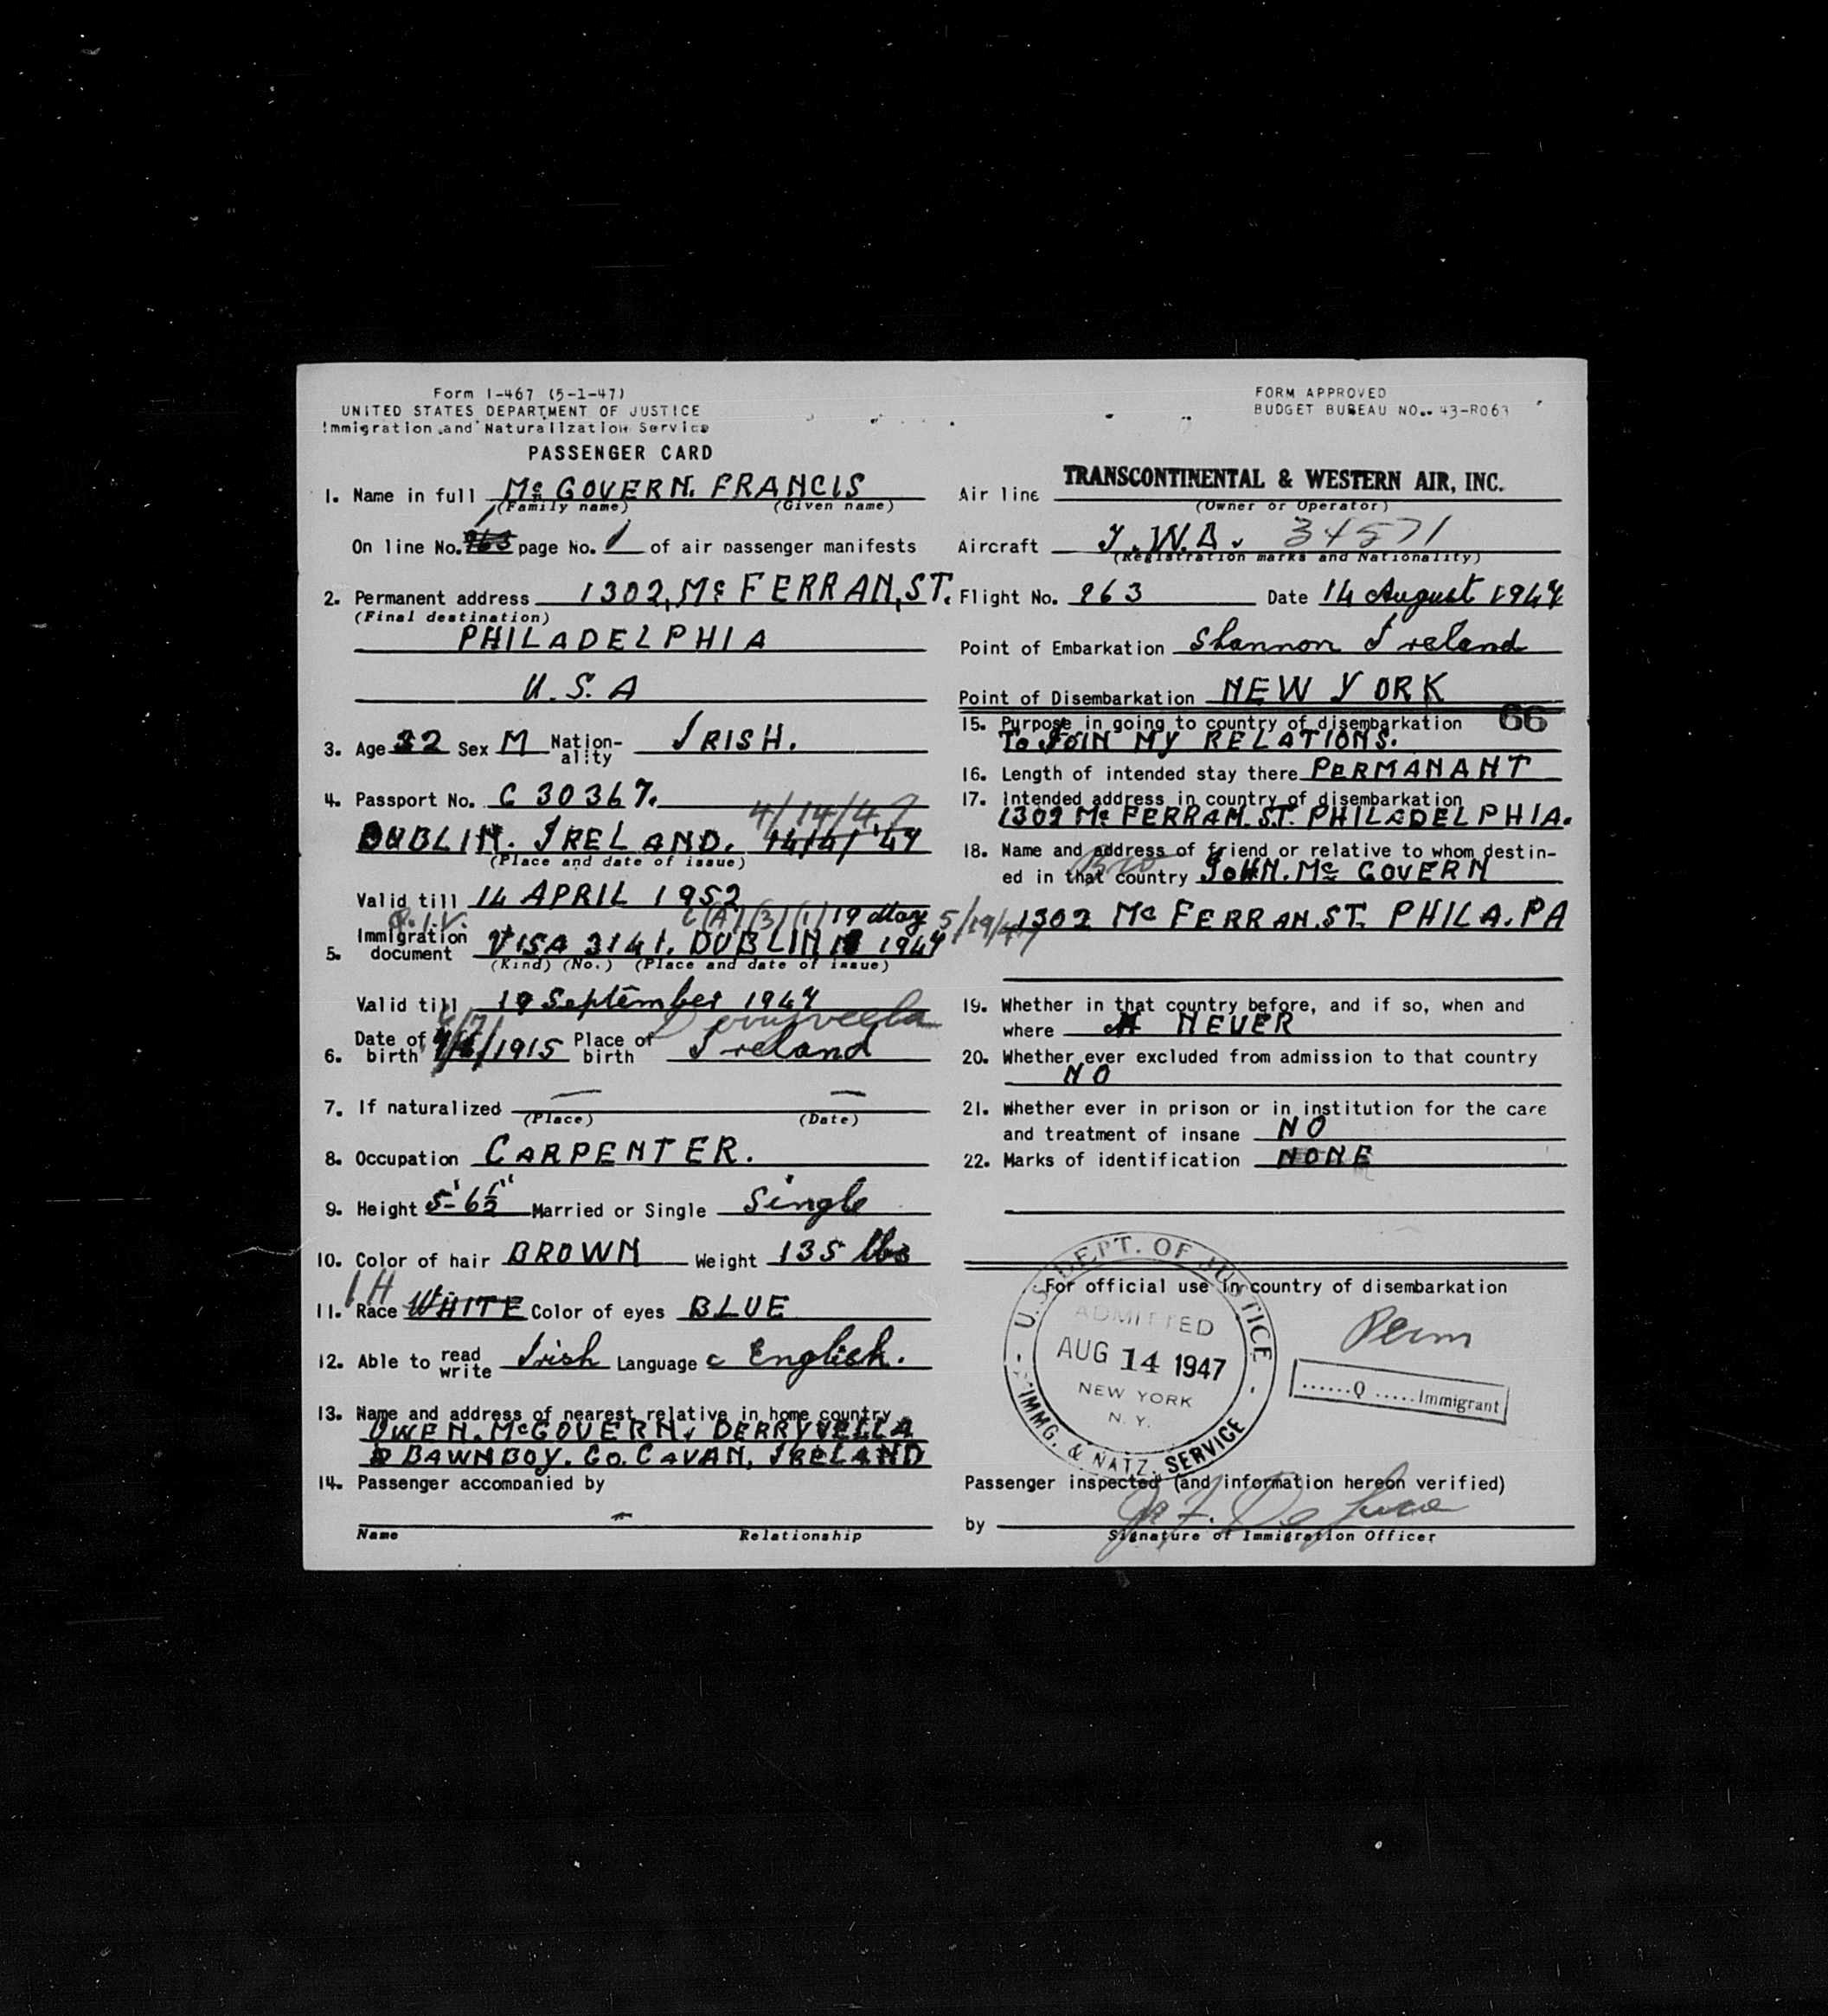 Form I-467 (5-1-47)
UNITED STATES DEPARTMENT OF JUSTICE
Immigration and Naturalization Service
PASSENGER CARD
FORM APPROVED
BUDGET BUREAU NO. 43-R063
1. Name in full Mc GOVERN. FRANCIS
(Family name) (Given name)
On line No. 963 1 page No. 1 of air passenger manifests
2. Permanent address 1302, Mc FERRAN, ST.
(Final destination)
PHILADELPHIA
U.S.A
3. Age 32 Sex M Nation-ality IRISH.
4. Passport No. C 30367.
4/14/47
DUBLIN. IRELAND. 14/4/'47
(Place and date of issue)
Valid till 14 APRIL 1952
Q.I.V. 6(A)(3)(1) 19 May 5/19/47
5. Immigration document VISA 3141. DUBLIN 1947
(Kind) (No.) (Place and date of issue)
Valid till 19 September 1947
6. Date of birth /1915 Place of birth Ireland
7. If naturalized — —
(Place) (Date)
8. Occupation CARPENTER.
9. Height 5'-6½" Married or Single Single
10. Color of hair BROWN Weight 135 lbs
IH
11. Race WHITE Color of eyes BLUE
12. Able to read write Irish Language English.
13. Name and address of nearest relative in home country
OWEN. McGOVERN. DERRYVELLA
BAWNBOY. CO. CAVAN, IRELAND
14. Passenger accompanied by
—
Name Relationship
Air line TRANSCONTINENTAL & WESTERN AIR, INC.
(Owner or Operator)
Aircraft T.W.A. 34571
(Registration marks and Nationality)
Flight No. 963 Date 14 August 1947
Point of Embarkation Shannon Ireland
Point of Disembarkation NEW YORK
66
15. Purpose in going to country of disembarkation
To JOIN MY RELATIONS.
16. Length of intended stay there PERMANANT
17. Intended address in country of disembarkation
1302 Mc FERRAN. ST. PHILADELPHIA.
18. Name and address of friend or relative to whom destin-
Bro
ed in that country JOHN. Mc GOVERN
1302 Mc FERRAN. ST. PHILA. PA
19. Whether in that country before, and if so, when and
where NEVER
20. Whether ever excluded from admission to that country
NO
21. Whether ever in prison or in institution for the care
and treatment of insane NO
22. Marks of identification NONE
For official use in country of disembarkation
U.S. DEPT. OF JUSTICE
ADMITTED
AUG 14 1947
NEW YORK
N. Y.
IMMG. & NATZ. SERVICE
Perm
......Q .....Immigrant
Passenger inspected (and information hereon verified)
by
Signature of Immigration Officer